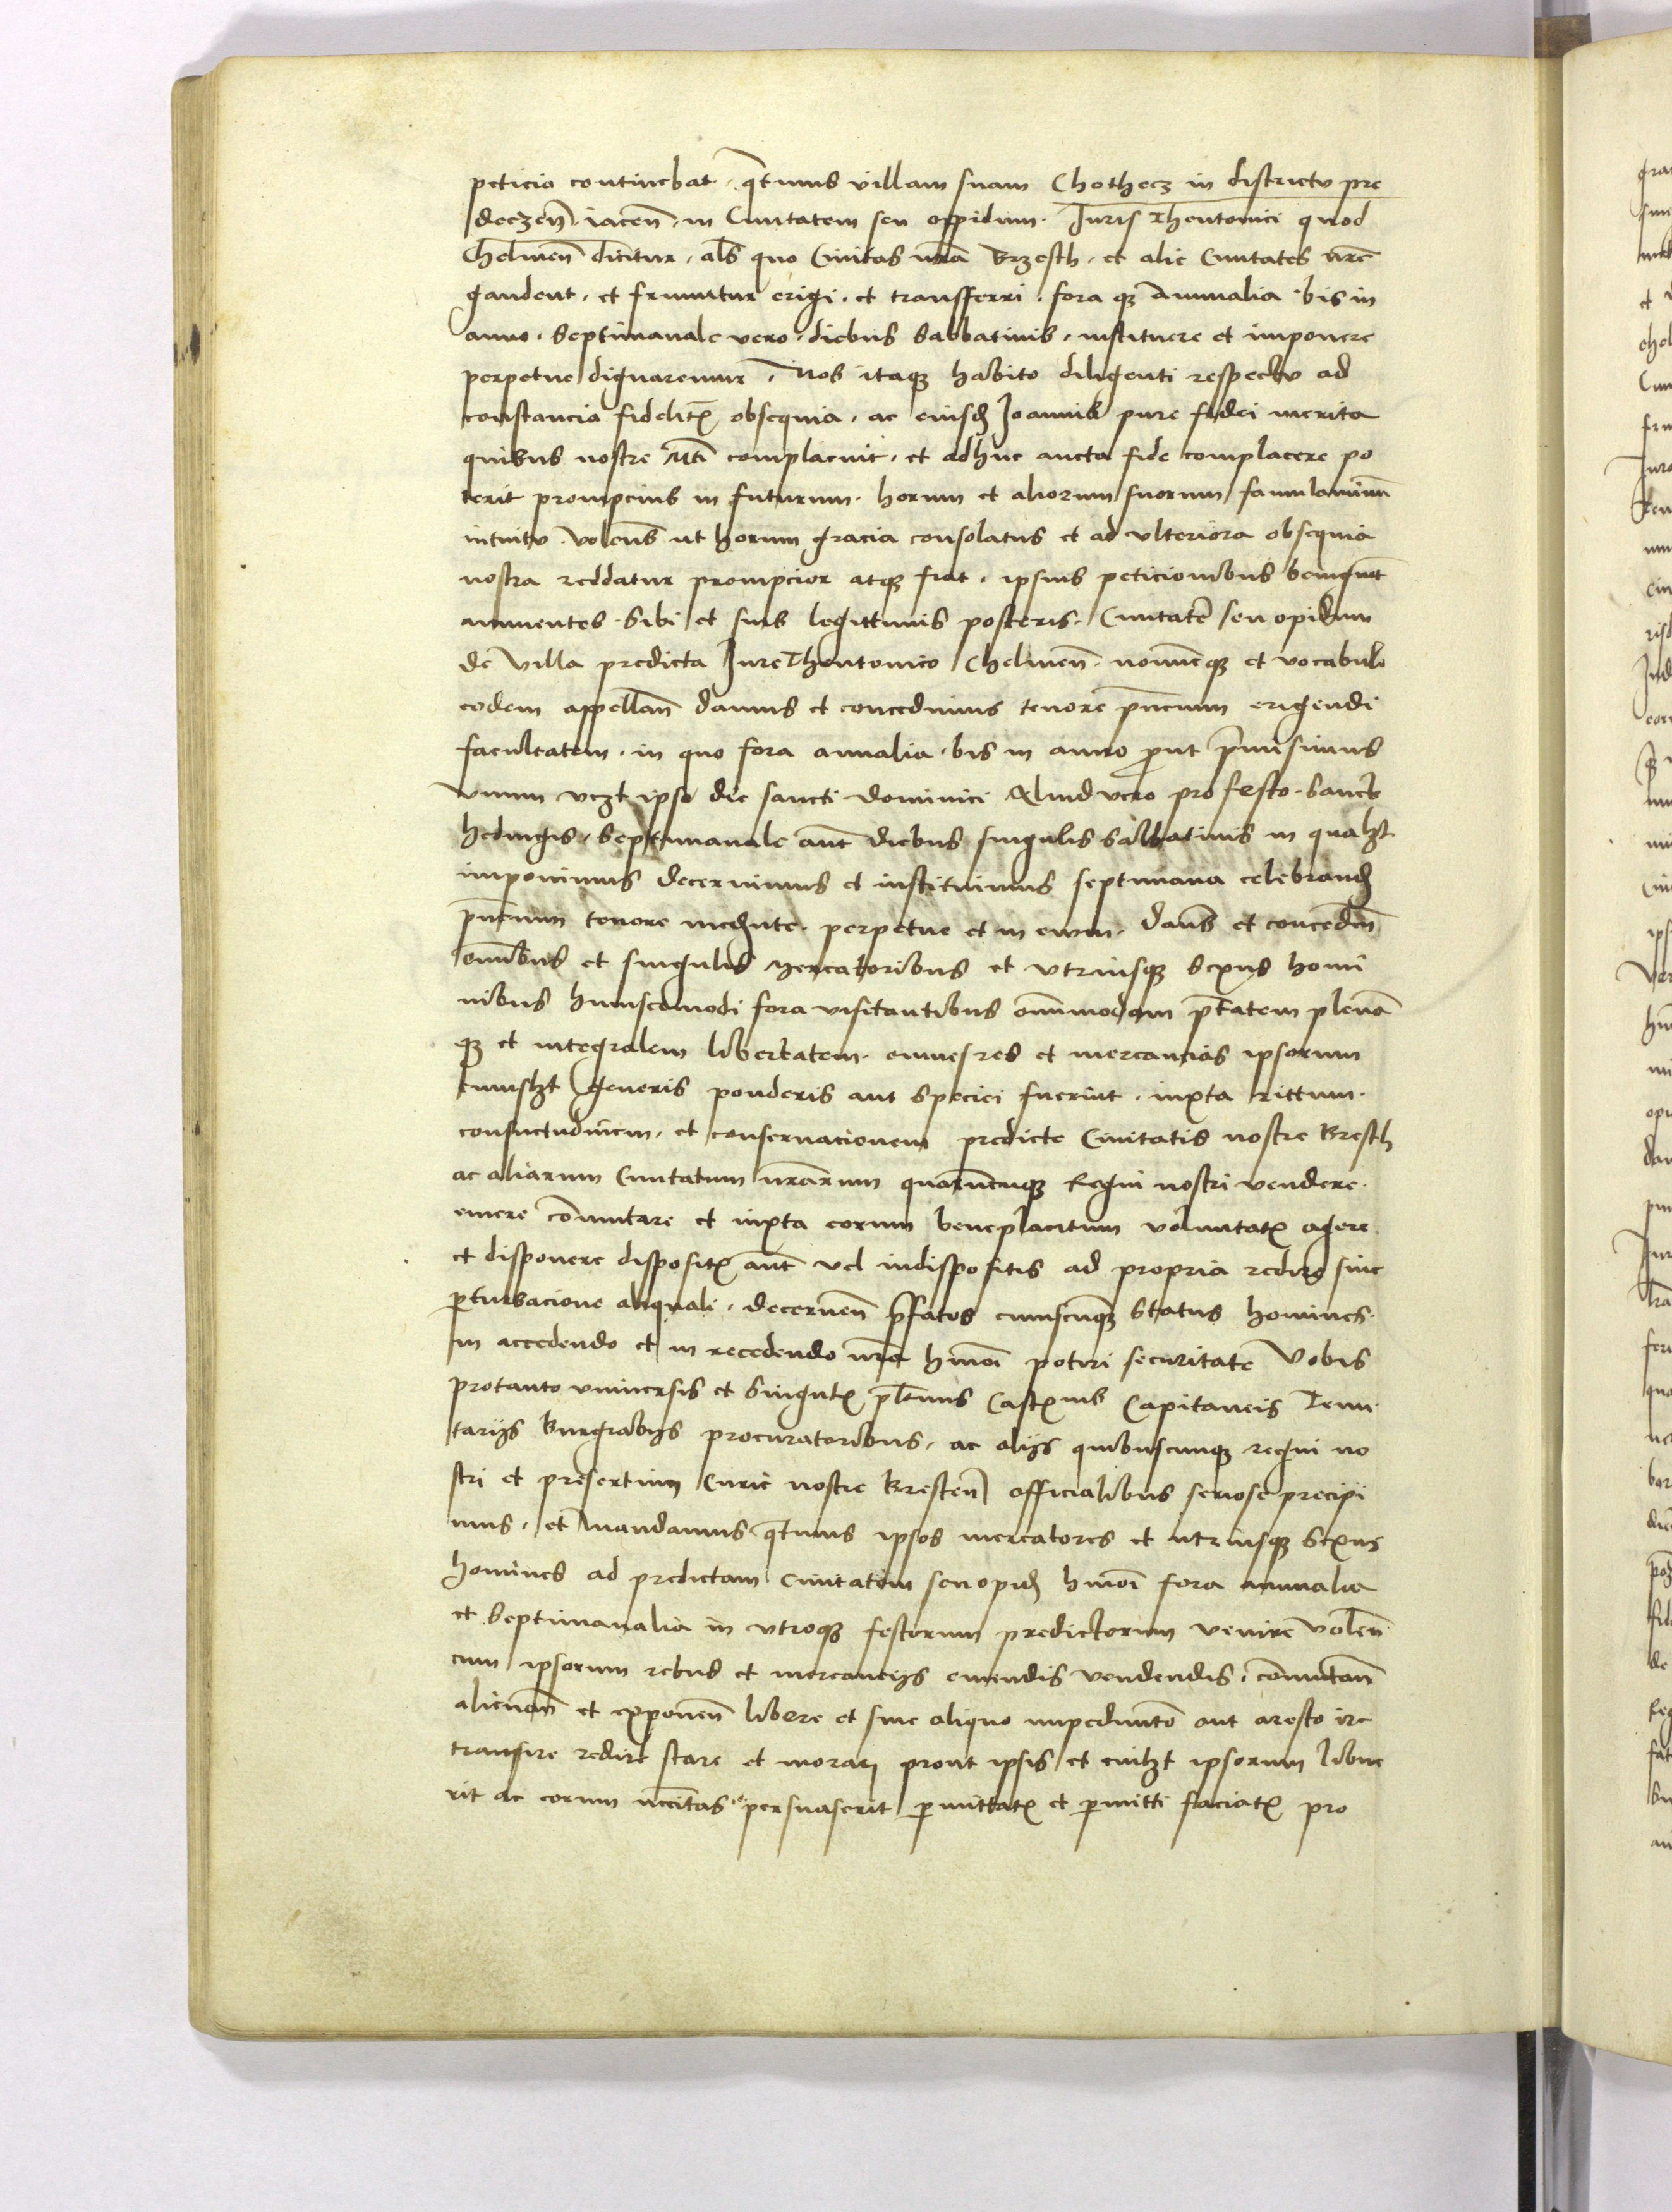 peticio continebat · qtenus villam suam Chothecz in districtu pre
deczen · iacen · in Civitatem seu oppidum · Juris Thentonici quod
Chelmen dicitur · als quo Civitas nra Brzesth · et alie Civitates nre
gaudent · et fruuntur erigi · et transferri · fora qz Annualia bis in
anno · Septimanale vero · diebus Sabbatinis · instituere et imponere
perpetue dignaremur · Nos itaqz habito diligenti respectu ad
constancia fidelitx obsequia · ac eiusd Joannis pure fidei merita
quibus nostre Mti complacuit · et adhuc aucta fide complacere po
terit prompcius in futurum · horum et aliorum suorum famulaminum
intuitu · Volens ut horum gracia consolatus et ad ulteriora obsequia
nostra reddatur prompcior atqz fiat · ipsius peticionibus benignit
annuentes · Sibi et suis legittimis posteris · Civitate seu opidum
de Villa predicta Jure Thentonico Chelmen · nomineqz et vocabulo
eodem appellan damus et concedimus tenore pncium erigendi
facultatem · in quo fora annalia · bis in anno put pmisimus
Unum vczt ipso die sancti dominici Aliud vero pro festo · Sancte
hedvigis · Septimanale aut diebus singulis Sabbatinis in qualzt
imponimus decernimus et instituimus septimana celebrand
pncium tenore medynte · perpetue et in evum · Dans et conceden
omnibus et singulis Mercatoribus et utriusqz Sexus homi
nibus huiuscemodi fora visitantibus omnimodam ptatem plena
qz et integralem libertatem · omnes res et mercancias ipsorum
cuiuslzt generis ponderis aut speciei fuerint · iuxta rittum ·
consuetudinem · et conservacionem predicte Civitatis nostre Bresth
ac aliarum Civitatum nrarum quarucuqz Regni nostri vendere ·
emere comutare et iuxta eorum beneplacitum voluntatx agere
et disponere dispositx aut vel indispositis ad propria redire sine
pturbacione aliquali · decernen pfatos cuiuscuqz Status homines ·
in accedendo et in recedendo nra hmoi potiri securitate Vobis
protanto universis et Singulx pltinus Castxnis Capitaneis Tenu
tarijs Burgrabijs procuratoribus · ac alijs quibuscunqz regni no
stri et presertim Curie nostre Bresten officialibus seriose precipi
mus · et mandamus qtenus ipsos mercatores et utriusqz Sexus
homines ad predictam civitatem seu opid hmoi fora annualia
et Septimanalia in utroqz festorum predictorum venire volen
cum ipsorum rebus et mercancijs emendis vendendis · comutan
alienan et exponen libere et sine aliquo impedimto aut aresto ire
transire redire stare et morari prout ipsis et cuilzt ipsorum libue
rit ac eorum nccitas persuaserit pmittatx et pmitti faciatx pro